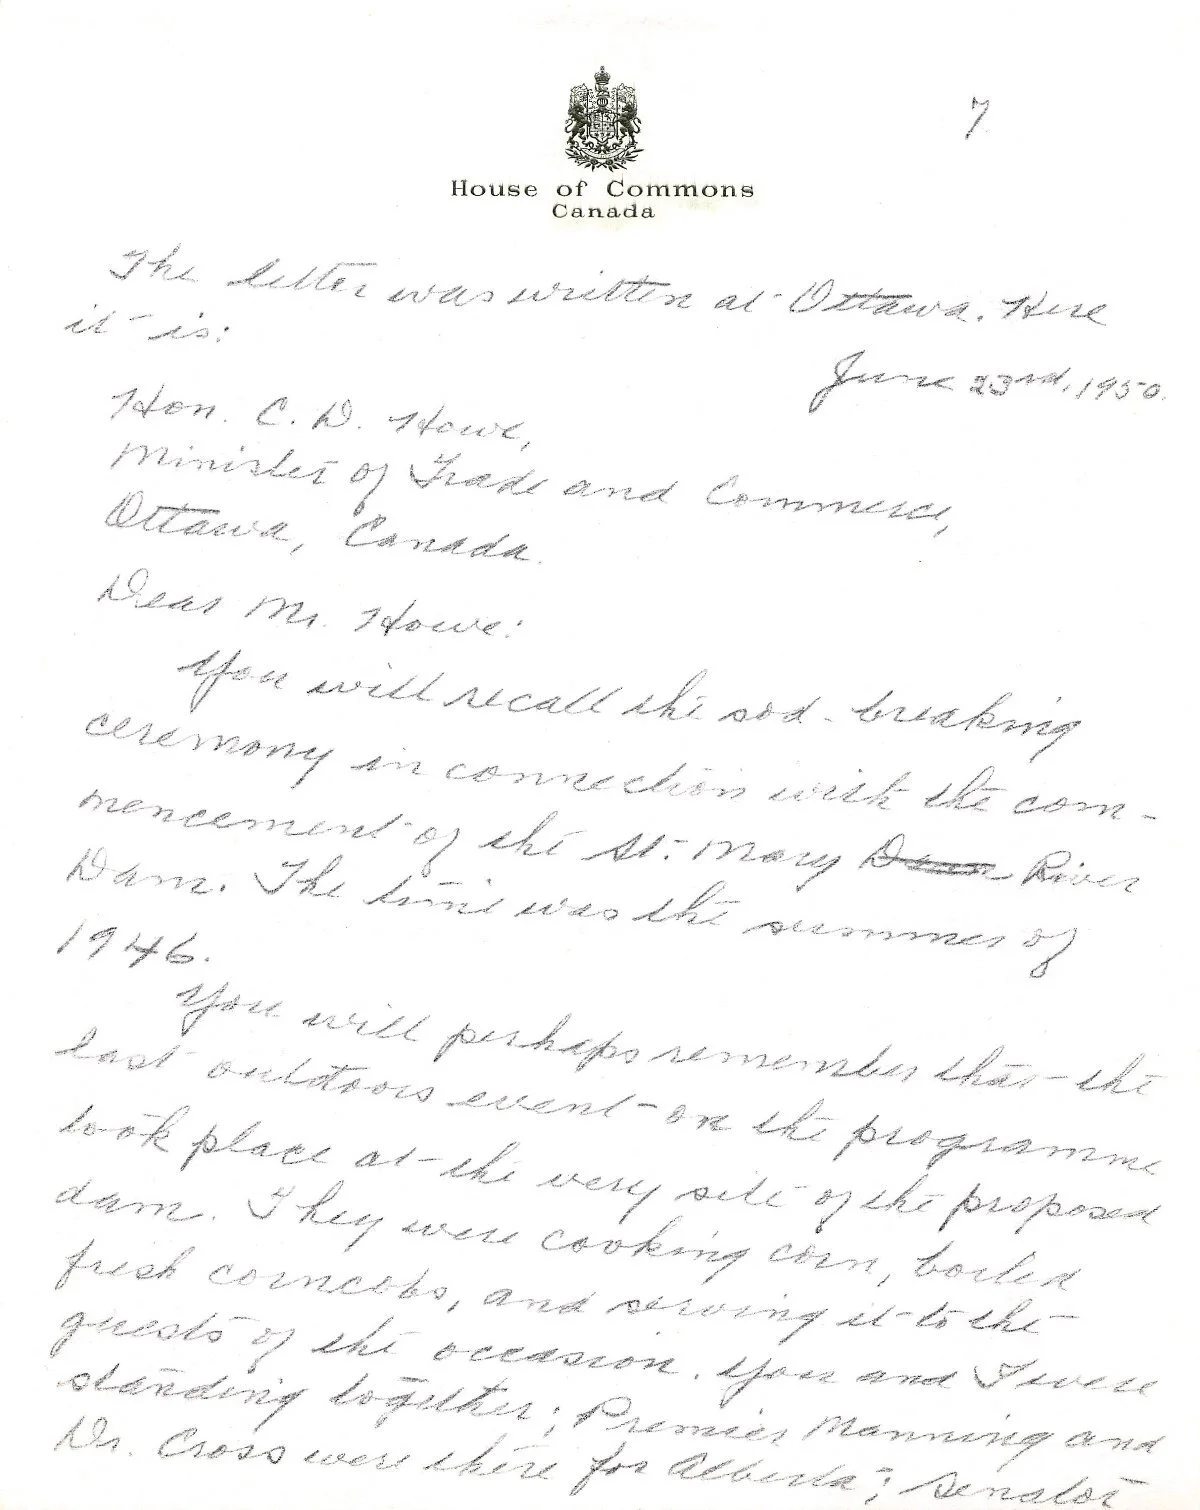 7
House of Commons
Canada
The letter was written at Ottawa. Here
it is:
June 23rd, 1950.
Hon. C. D. Howe,
Minister of Trade and Commerce,
Ottawa, Canada.
Dear Mr. Howe:
You will recall the sod-breaking
ceremony in connection with the com-
mencement of the St. Mary Dam River
Dam. The time was the summer of
1946.
You will perhaps remember that the
last outdoors event on the programme
took place at the very site of the proposed
dam. They were cooking corn, boiled
fresh corncobs, and serving it to the
guests of the occasion. You and I were
standing together; Premier Manning and
Dr. Cross were there for Alberta; Senator